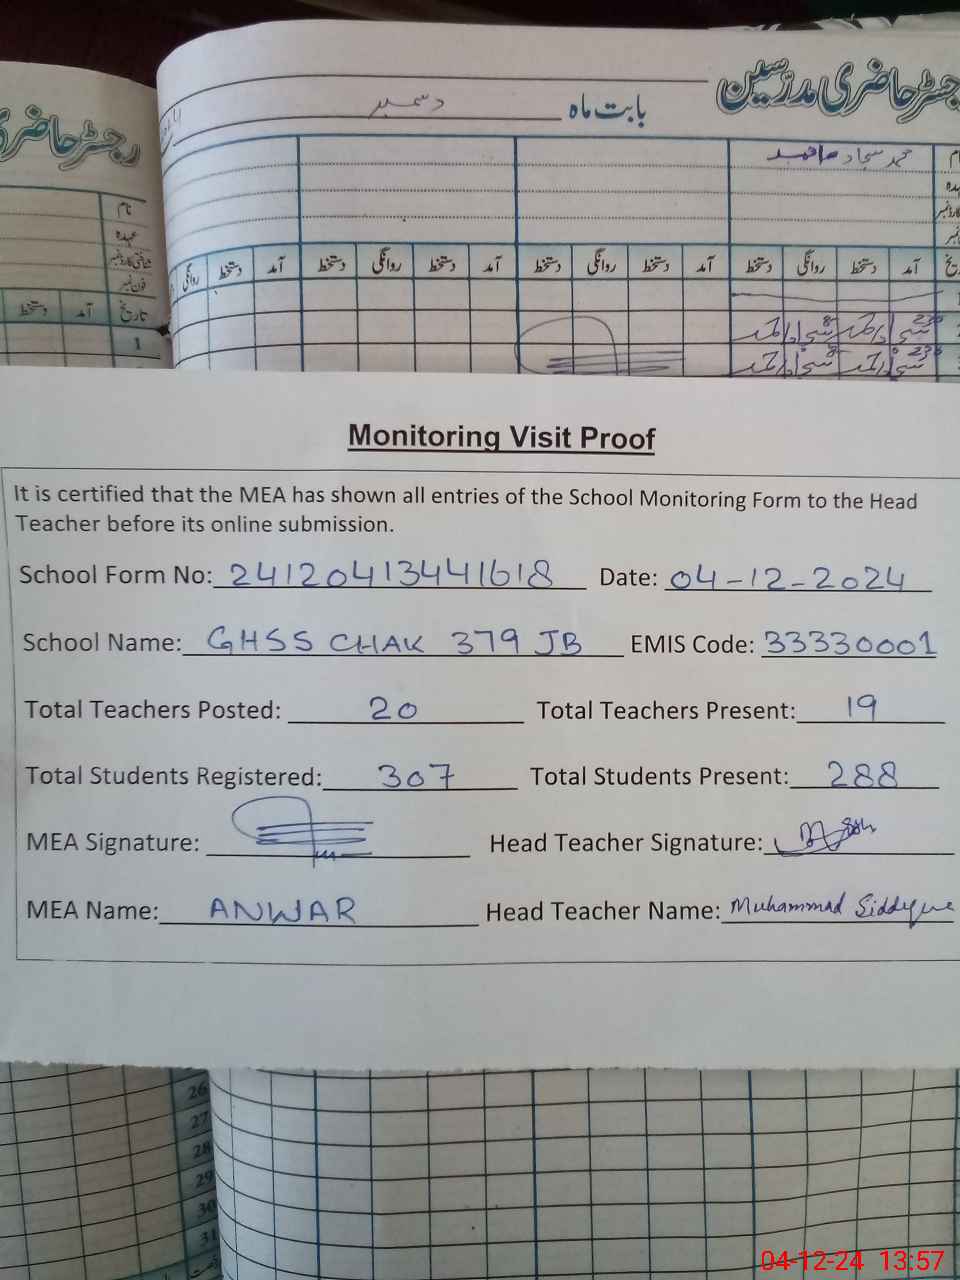 رجسٹر حاضری مدرّسین
بابت ماہ دسمبر
رجسٹر حاضری
محمد سجاد احمد
نام
عہدہ
شناختی کارڈ نمبر
فون نمبر
تاریخ آمد دستخط
1
آمد دستخط روانگی دستخط آمد دستخط روانگی دستخط آمد دستخط روانگی دستخط آمد دستخط روانگی
Monitoring Visit Proof
It is certified that the MEA has shown all entries of the School Monitoring Form to the Head
Teacher before its online submission.
School Form No: 24120413441618 Date: 04-12-2024
School Name: GHSS CHAK 379 JB EMIS Code: 33330001
Total Teachers Posted: 20 Total Teachers Present: 19
Total Students Registered: 307 Total Students Present: 288
MEA Signature: Head Teacher Signature:
MEA Name: ANWAR Head Teacher Name: Muhammad Siddique
26
27
28
29
30
31
04-12-24 13:57